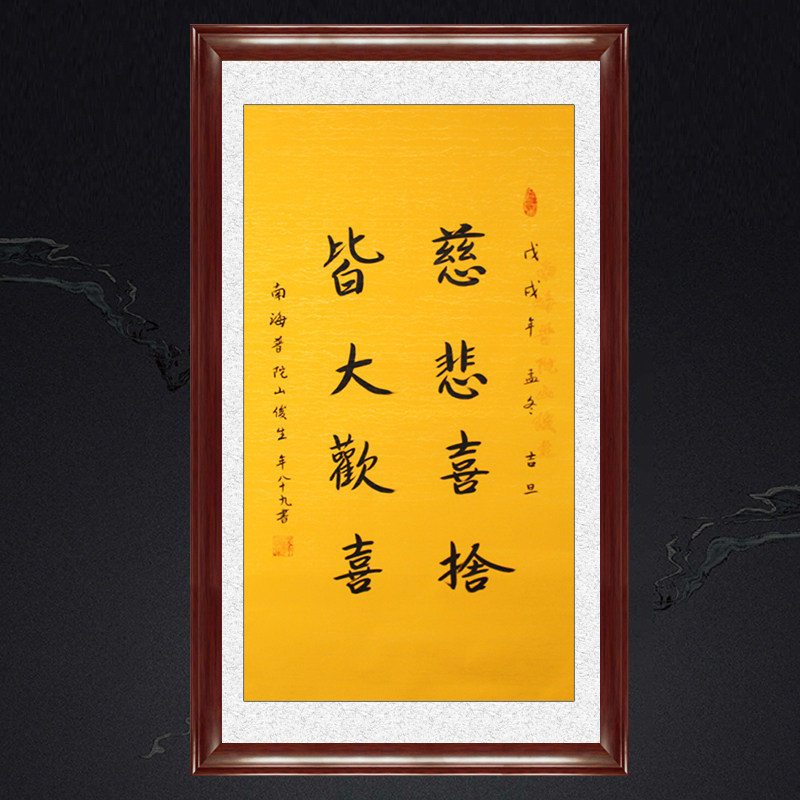 戊戌年孟冬吉旦
慈悲喜捨
皆大歡喜
南海普陀山俊生年八十九書